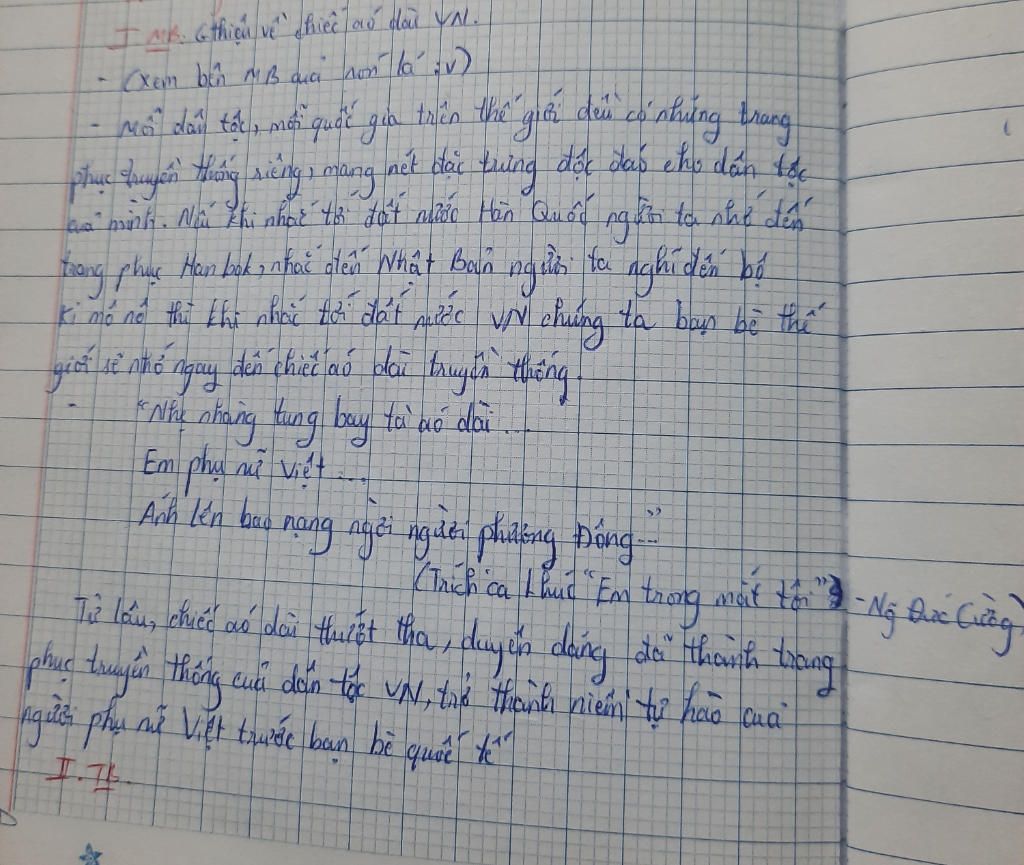 I MB. Gthiệu về chiếc áo dài VN.
- (Xem bên MB quả nón lá :v)
- Mỗi dân tộc, mỗi quốc gia trên thế giới đều có những trang
phục truyền thống riêng, mang nét đặc trưng độc đáo cho dân tộc
của mình. Nếu khi nhắc tới đất nước Hàn Quốc người ta nhớ đến
trang phục Hanbok, nhắc đến Nhật Bản người ta nghĩ đến bộ
ki mô nô thì khi nhắc tới đất nước VN chúng ta bạn bè thế
giới sẽ nhớ ngay đến chiếc áo dài truyền thống.
- "Nhẹ nhàng tung bay tà áo dài...
Em phụ nữ Việt....
Ánh lên bao nạng ngời người phương Đông..."
(Trích ca khúc "Em trong mắt tôi" - Ng Đức Cường)
Từ lâu, chiếc áo dài thướt tha, duyên dáng đã thành trang
phục truyền thống của dân tộc VN, trở thành niềm tự hào của
người phụ nữ Việt trước bạn bè quốc tế
II. TB.